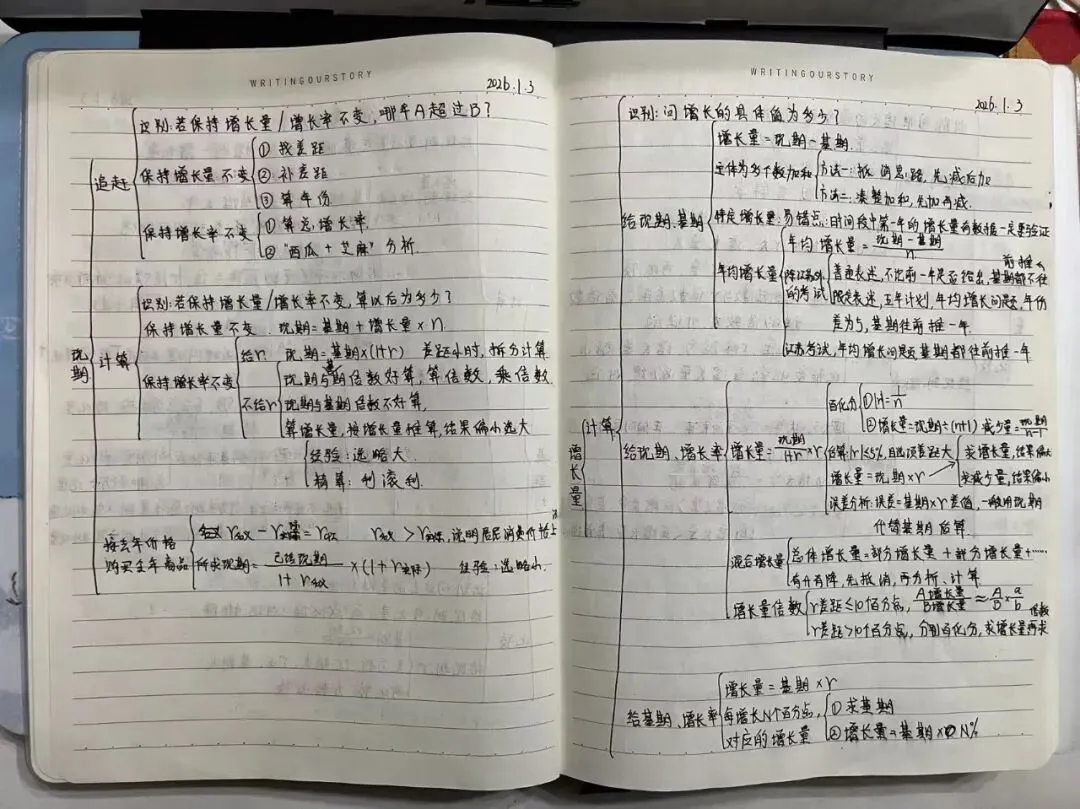 WRITINGOURSTORY
2026.1.3
识别:若保持增长量/增长率不变,哪年A超过B?
追赶
保持增长量不变
① 找差距
② 补差距
③ 算年份
保持增长率不变
① 算总增长率.
② "西瓜+芝麻"分析.
现期
计算
识别:若保持增长量/增长率不变,算以后为多少?
保持增长量不变. 现期=基期+增长量×n.
保持增长率不变
给r 现期=基期×(1+r) 差距小时,拆分计算
不给r
现期与基期倍数好算,算倍数,乘倍数.
现期与基期倍数不好算,
算增长量,按增长量推算,结果偏小选大
经验:选略大
精算:利滚利.
按去年价格
购买今年商品
r名义-r实际=r价 r名义>r实际,说明居民消费价格上
所求现期=已给现期/1+r名义×(1+r实际) 经验:选略小.
WRITINGOURSTORY
2026.1.3
识别:问增长的具体值为多少?
增长量
计算
给现期、基期
增长量=现期-基期.
主体为多个数加和
方法一:抵消思路,先减后加
方法二:凑整加和,先加再减.
特定增长量:易错点:时间段中第一年的增长量有数据一定要验证
年均增长量
年均增长量=现期-基期/n
除江苏外的考试
普通表述,不论前一年是否给出,基期都不往前推
限定表述,五年计划,年均增长问题,年份
差为5,基期往前推一年.
江苏考试,年均增长问题基期都往前推一年
给现期、增长率
增长量=现期/1+r×r
百化分
①|r|=1/n
②增长量=现期÷(n+1) 减少量=现期/n-1
估算:|r|≤5%,且选项差距大
增长量=现期×r
求增长量,结果偏大
求减少量,结果偏小
误差分析:误差=基期×r差值,一般用现期
代替基期后算.
混合增长量
总体增长量=部分增长量+部分增长量+……
有升有降,先抵消,再分析、计算
增长量倍数
r差距≤10个百分点,A增长量/B增长量≈A/B×a/b
r差距>10个百分点,分别百化分,求增长量再求倍数
给基期、增长率
增长量=基期×r
每增长N个百分点,
对应的增长量
① 求基期
② 增长量=基期×N%